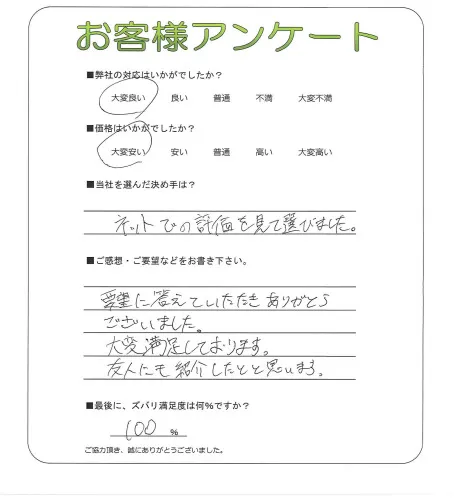 お客様アンケート
■弊社の対応はいかがでしたか？
大変良い 良い 普通 不満 大変不満
■価格はいかがでしたか？
大変安い 安い 普通 高い 大変高い
■当社を選んだ決め手は？
ネットでの評価を見て選びました。
■ご感想・ご要望などをお書き下さい。
要望に答えていただきありがとう
ございました。
大変満足しております。
友人にも紹介したいと思います。
■最後に、ズバリ満足度は何％ですか？
100 ％
ご協力頂き、誠にありがとうございました。